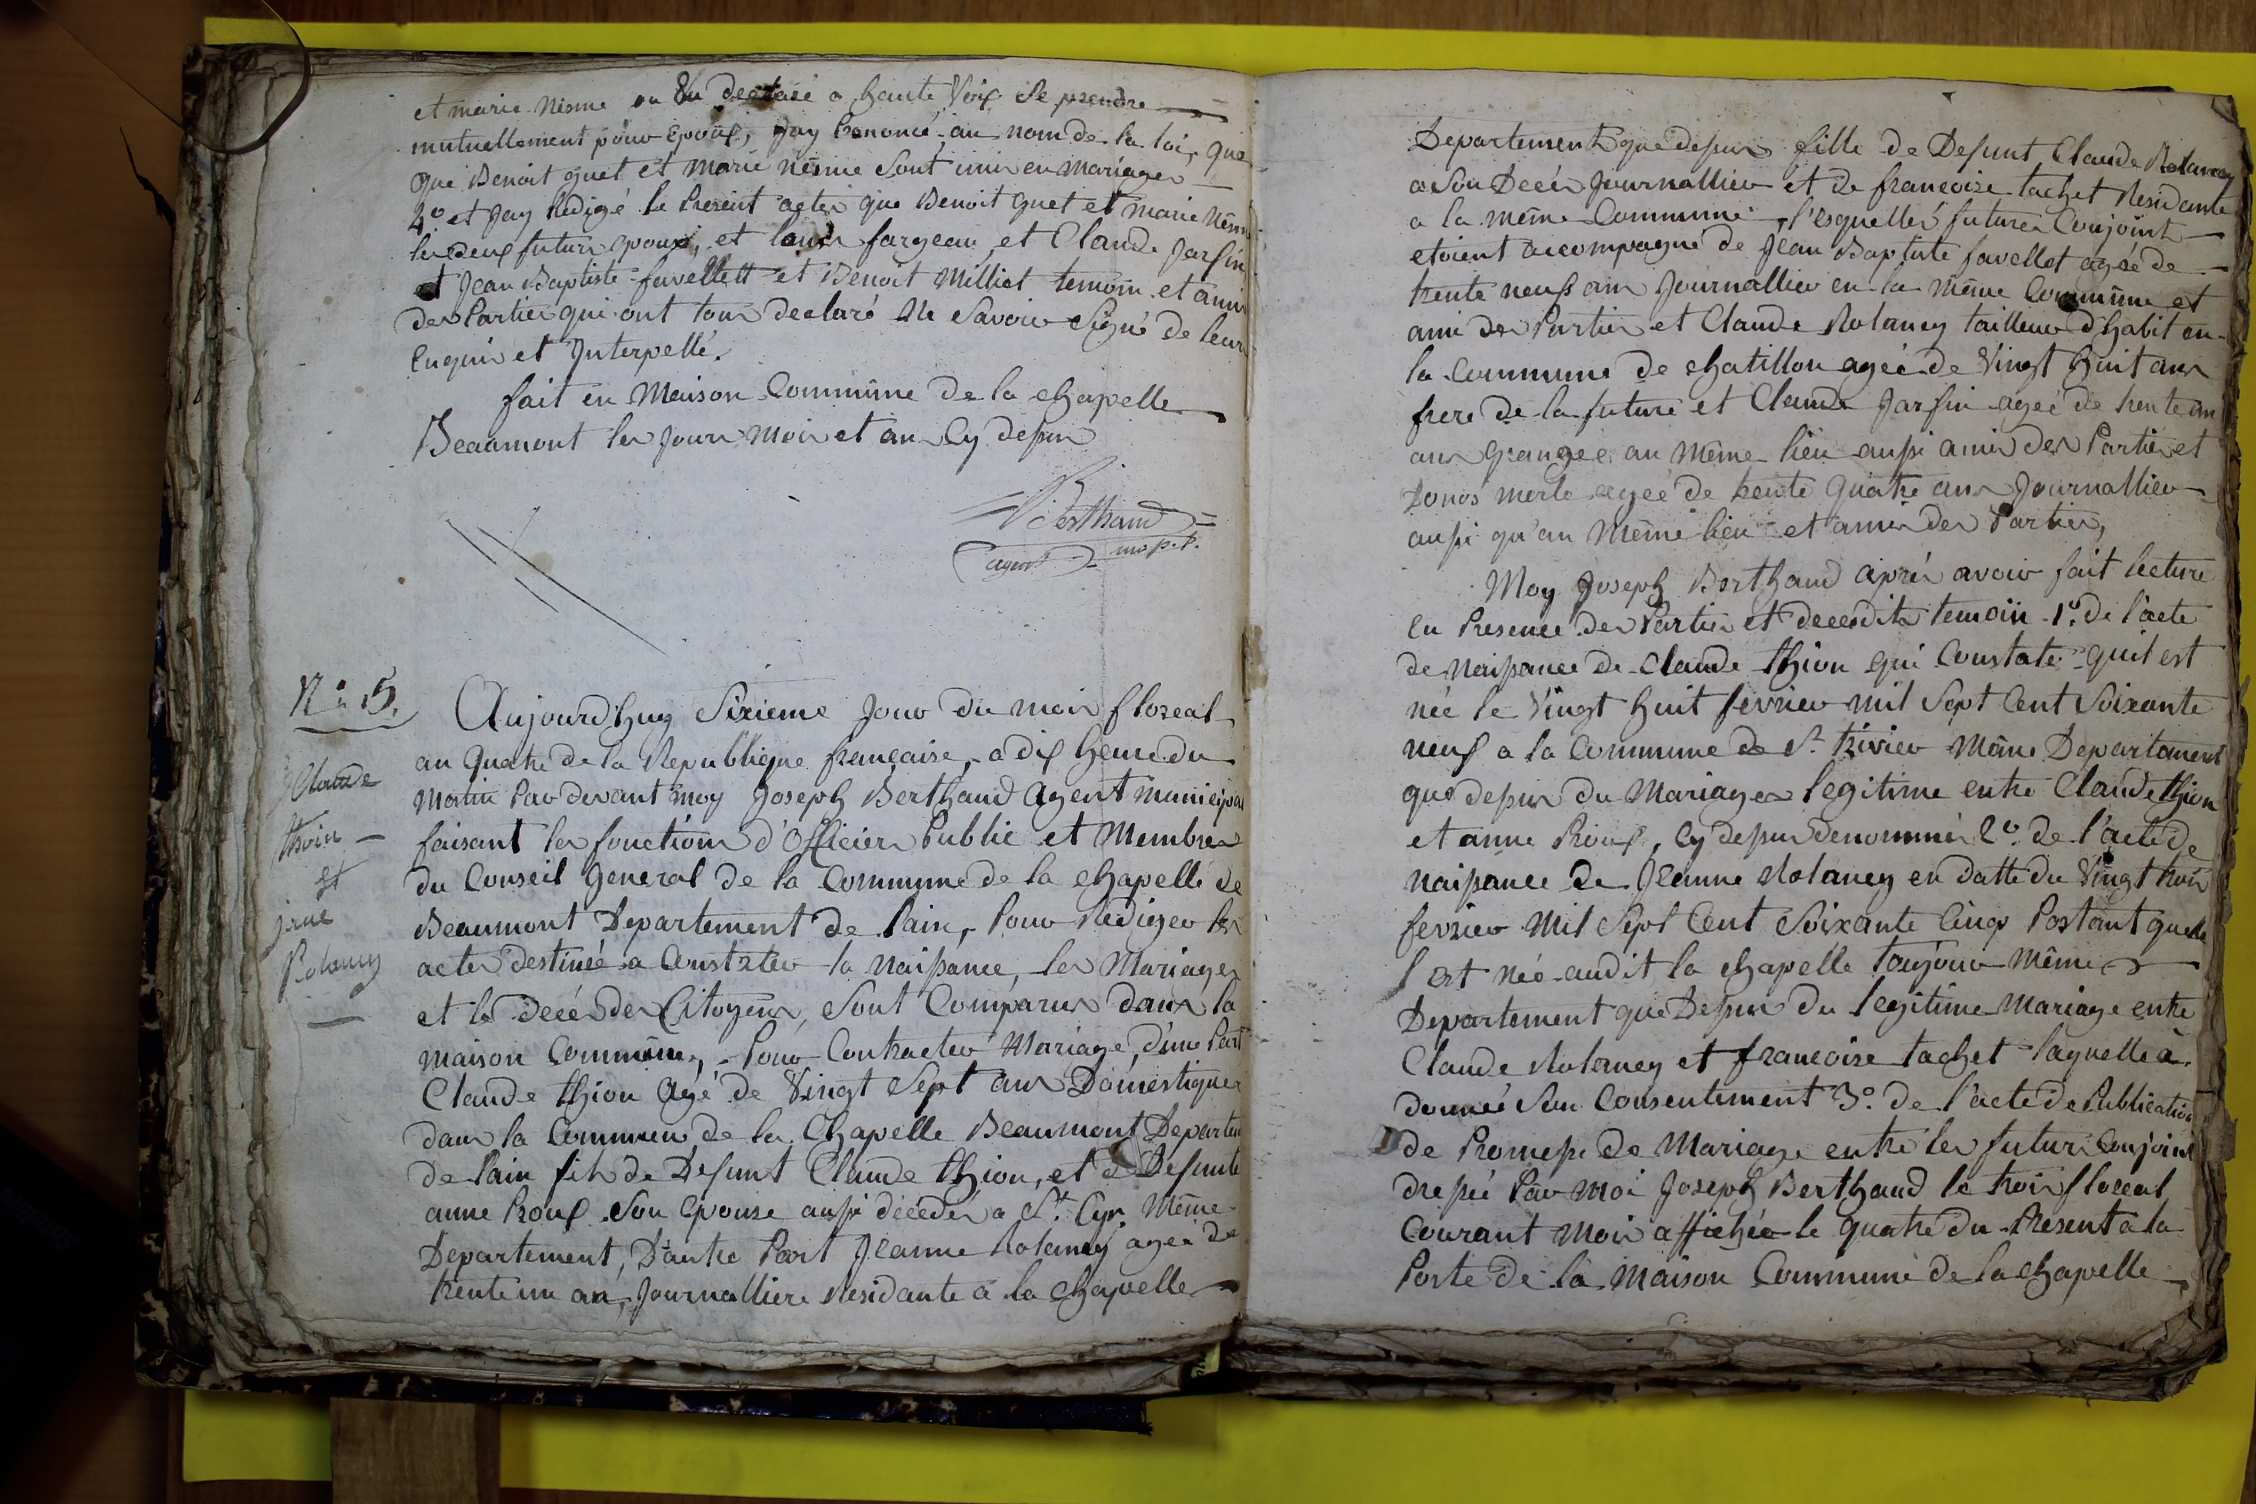 et marie Nesme on Eu declaré a haute Voix se prendre
mutuellement pour Epoux, Jay Prononcé au nom de la loi, que
que Benoit guet et marie nesme Sont unis en Mariages
4.° et Jay Redigé le Present actes que Benoit guet et marie Nesme
les deux futurs epoux, et louis fargeau, et Claude Jarfin
et Jean Baptiste favellett et Benoit Milliet temoin et amis
des Parties qui ont tous declaré Ne Savoir Signé de leurs
Enquis et Interpellé.
fait en Maison Commûne de la chapelle
Beaumont les Jour Mois et an Cy dessus
Berthaud
agent mop.l.
N.° 5.
Claude
thoin
et
jane
Rolancy
Aujourdhuy Sixieme Jour du mois floreal
an Quatre de la Republique française, a dix heure du
Matin Par devant moy Joseph Berthaud Agent municipal
faisant les fonctions d'Officiers Public et Membres
du Conseil general de la Commune de la chapelle de
Beaumont Departement de lain, Pour Rediger les
actes destinée a Constater la Naissance, les Mariages
et le decés des Citoyens, Sont Comparus dans la
maison Commûne, Pour Contracter Mariage, d'une Part
Claude thion Agé de Vingt Sept ans Domestiques
dans la Commune de la Chapelle Beaumont Departem
de lain fils de Defunt Claude thion, et de Defunte
anne Roux Son Epouse aussi décedés a S.t Cyr Même
Departement, Dautre Part Jeanne Rolancy agée de
trente un an, Journalliere Residante a la chapelle
Departement que dessus fille de Defunt Claude Rolancy
a Son Decés Journallier et de françoise tachet Residante
a la même Commune, l'esquelles futures Conjoint
etoient accompagné de Jean Baptiste favellet agée de
trente neuf ans Journallier en la même Commune et
ami des Parties et Claude Rolancy tailleur d'habit en
la Commune de chatillon agée de Vingt huit ans
frere de la future et Claude Jarfin agée de trente un
ans Granger au Même lieu aussi amis des Parties et
Donos merle agée de trente Quatre ans Journallier
aussi qu'au Même lieu et amis des Parties,
Moy Joseph Berthaud aprés avoir fait lecture
En Presence des Parties et decesdits temoin 1.° de l'acte
de Naissance de Claude thion qui Constate quil est
née le Vingt huit fevrier mil Sept Cent Soixante
neuf a la Commune de S.t trivier Même Departement
que dessus du Mariages legitime entre Claude thion
et anne Roux, Cy dessus denommés 2.° de l'acte de
naissance de Jeanne Rolancy en datte du Vingt trois
fevrier mil Sept Cent Soixante Cinq Portant quelle
est née audit la chapelle toujour même
Departement que Dessus du legitime Mariage entre
Claude Rolancy et françoise tachet laquelle à
donneé Son Consentement 3.° de l'acte de Publication
de Promesse de Mariage entre les futurs Conjoint
dressée Par moi Joseph Berthaud le trois floreal
Courant Mois affichée le quatre du Present a la
Porte de la Maison Commune de la chapelle